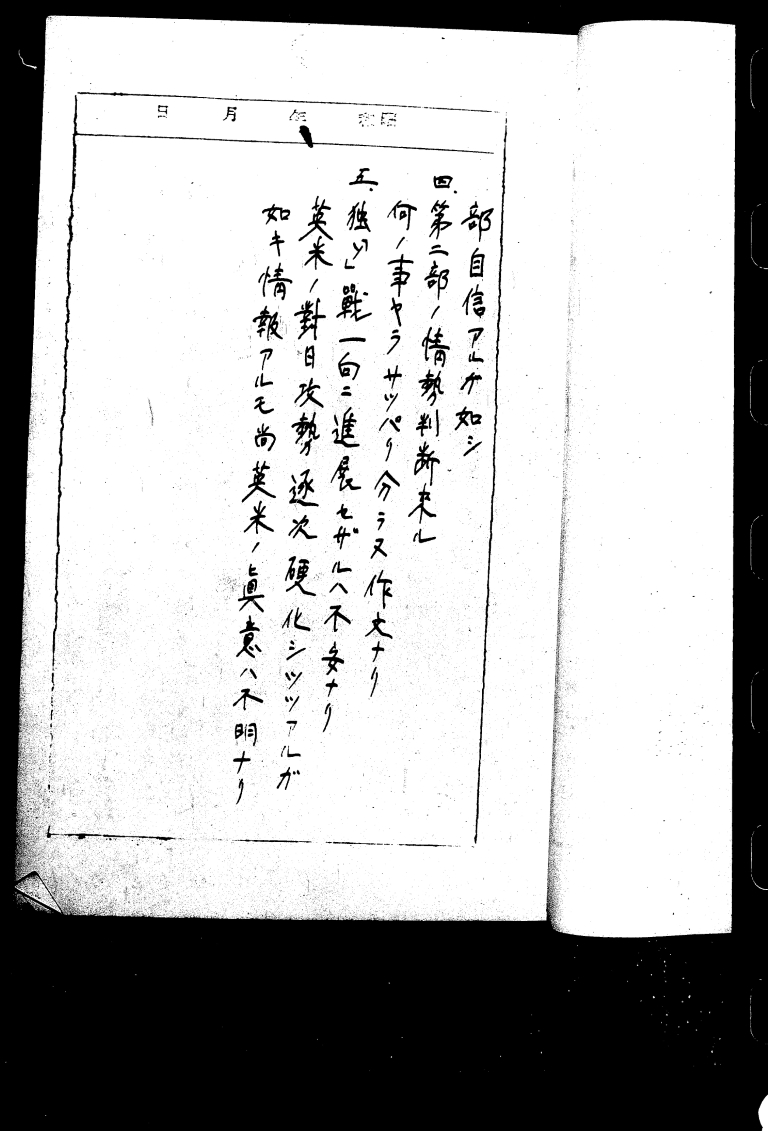 昭和 年 月 日
部自信アルガ如シ
四、第二部ノ情勢判断来ル
何ノ事ヤラサツパリ分ラヌ作文ナリ
五、独「ソ」戰一向ニ進展セザルハ不安ナリ
英米ノ對日攻勢逐次硬化シツツアルガ
如キ情報アルモ尚英米ノ眞意ハ不明ナリ